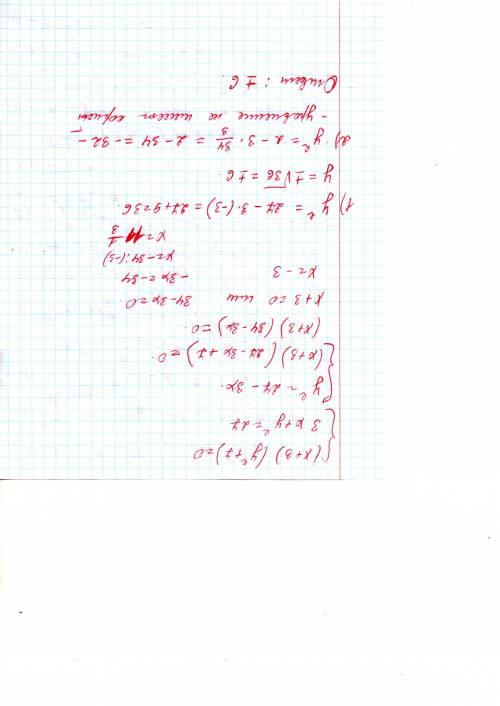 (x+3) (y²+7)=0
3x+y²=27
y²=27-3x
(x+3) (27-3x+7)=0.
(x+3) (34-3x)=0
x+3=0 или 34-3x=0.
x=-3 -3x=-34
x=-34:(-3)
x=11 1/3
1) y²=27-3·(-3)=27+9=36.
y=±√36=±6
2) y²=2-3·34/3=2-34=-32-
-уравнение не имеет корней
Ответ: ±6.